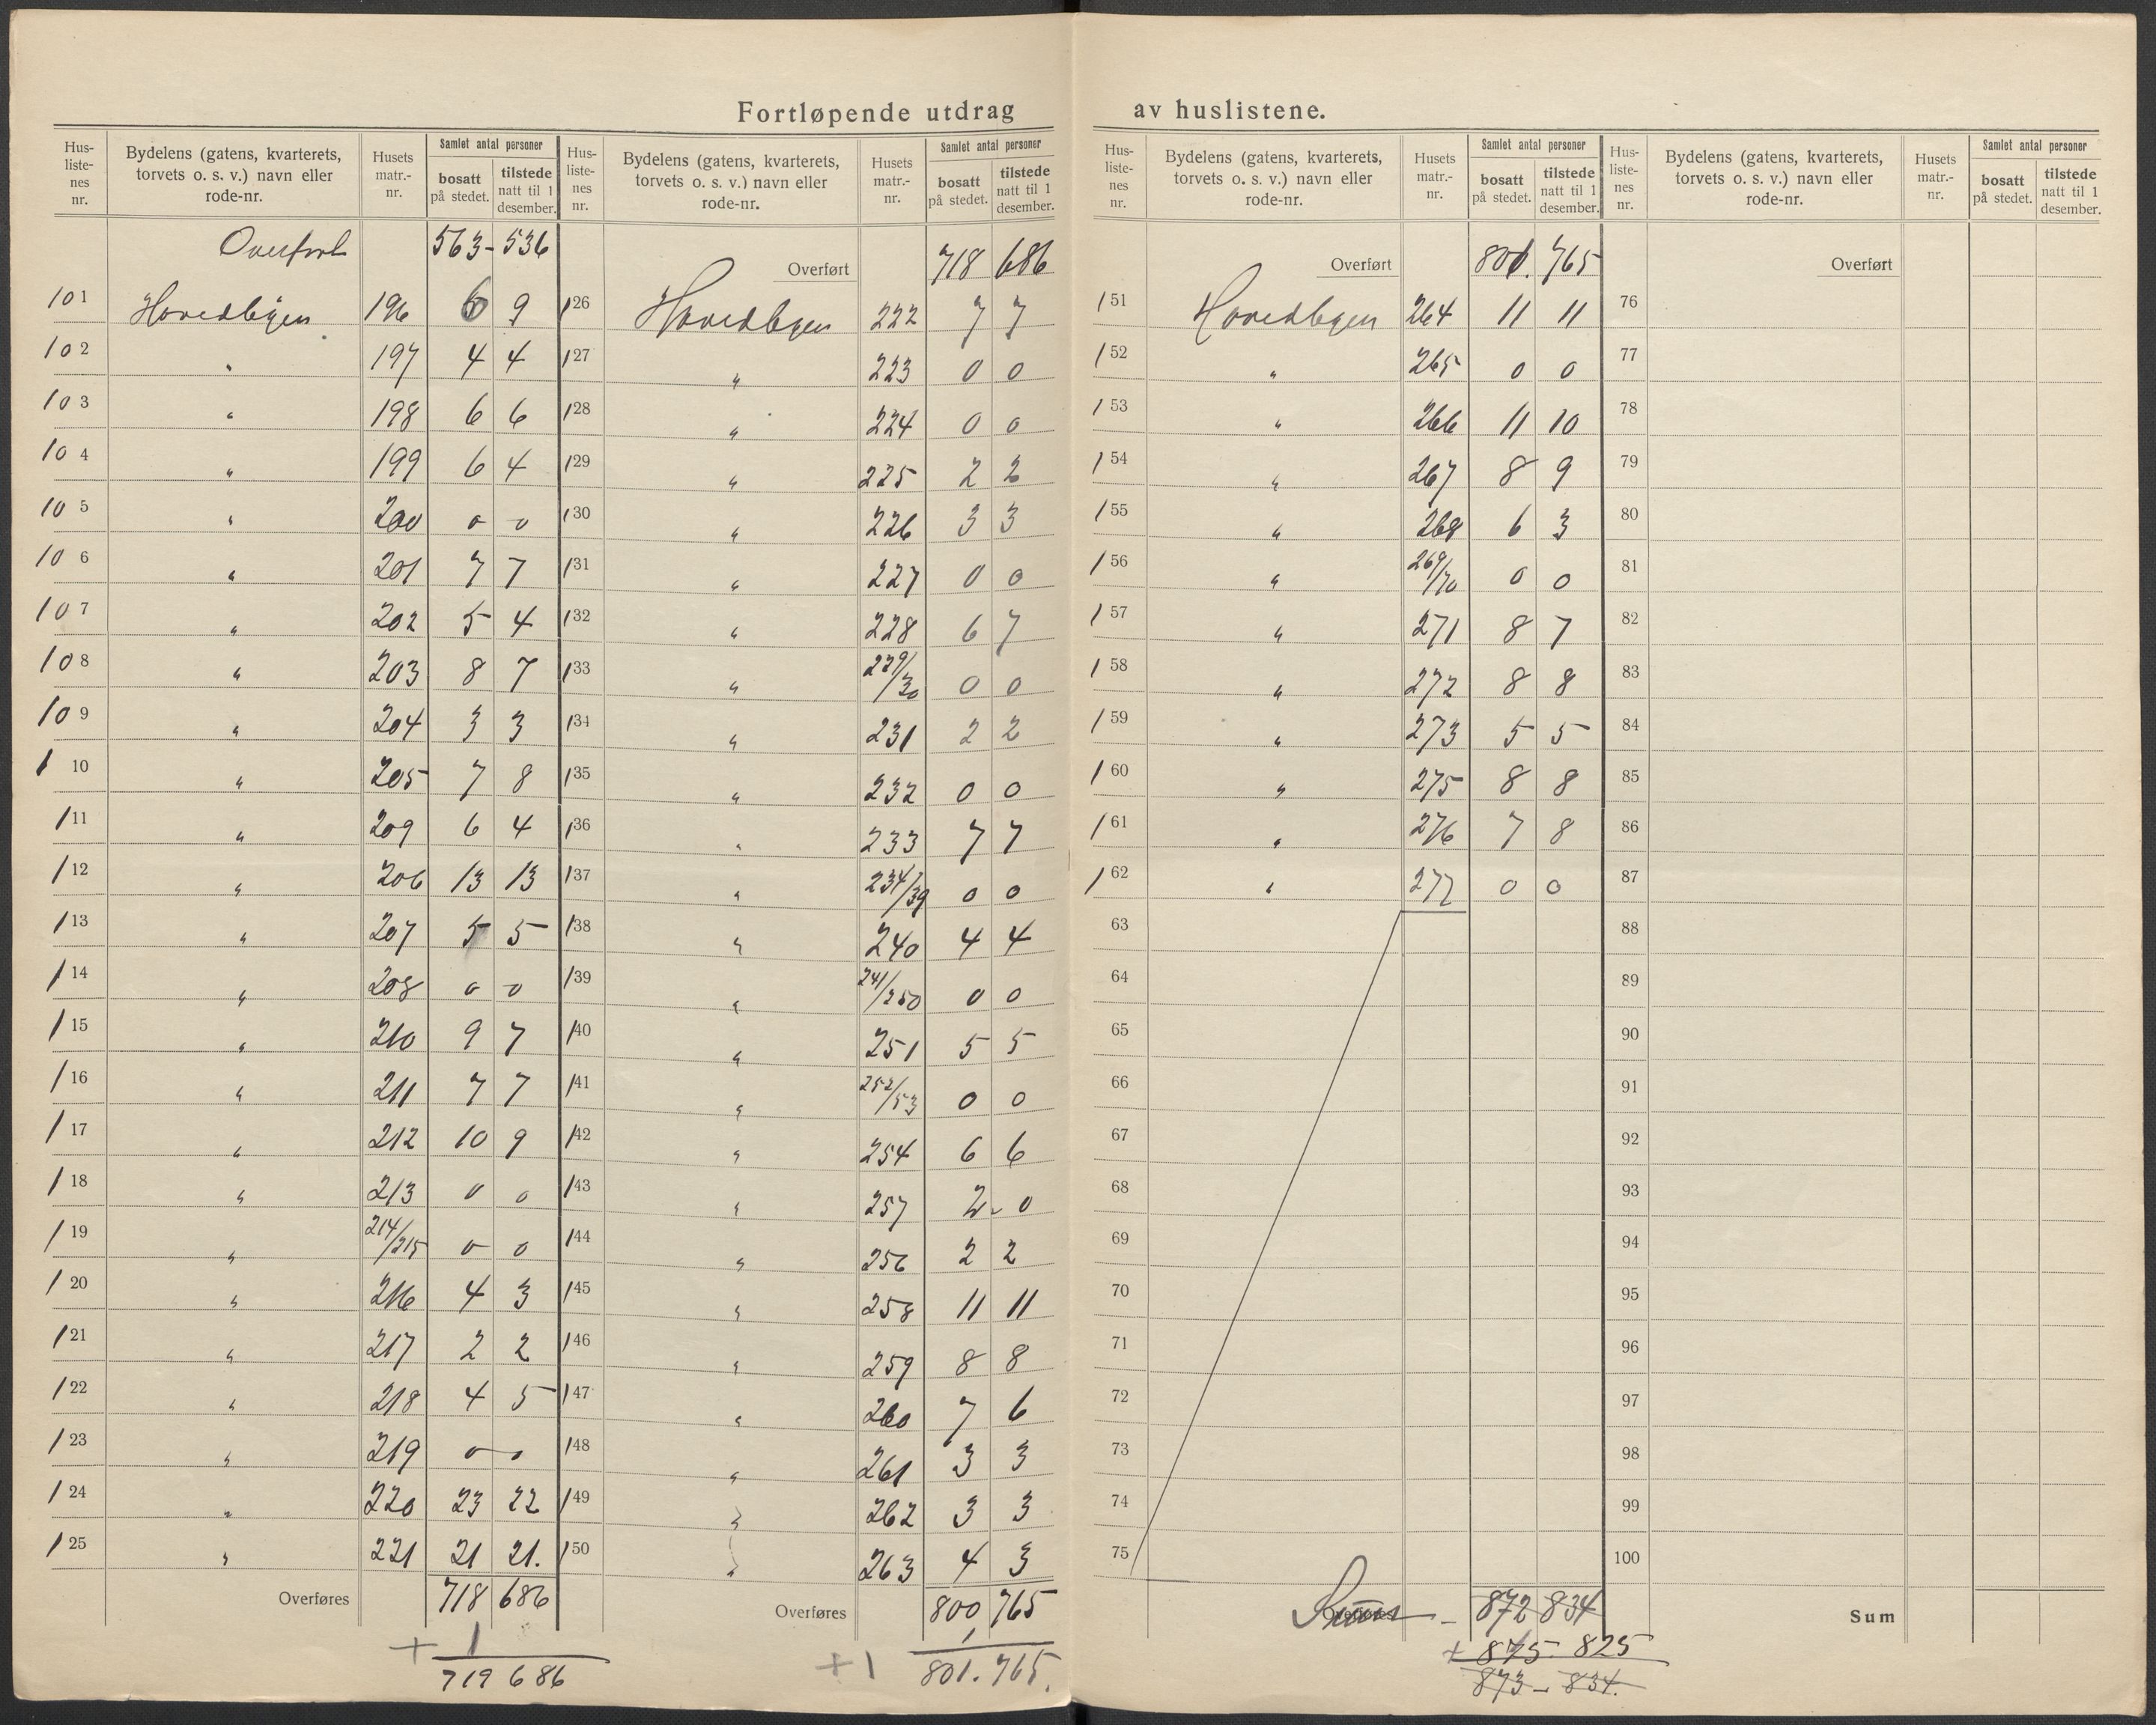 Fortløpende utdrag av huslistene.
Hus-liste-nes nr. | Bydelens (gatens, kvarterets, torvets o. s. v.) navn eller rode-nr. | Husets matr.-nr. | Samlet antal personer | bosatt på stedet. | tilstede natt til 1 desember.
Overført 563 - 536
101 Hovedbyen 196 6 9
102 " 197 4 4
103 " 198 6 6
104 " 199 6 4
105 " 200 0 0
106 " 201 7 7
107 " 202 5 4
108 " 203 8 7
109 " 204 3 3
110 " 205 7 8
111 " 209 6 4
112 " 206 13 13
113 " 207 5 5
114 " 208 0 0
115 " 210 9 7
116 " 211 7 7
117 " 212 10 9
118 " 213 0 0
119 " 214/215 0 0
120 " 216 4 3
121 " 217 2 2
122 " 218 4 5
123 " 219 0 0
124 " 220 23 22
125 " 221 21 21.
Overføres 718 686
+ 1
719 686
Hus-liste-nes nr. | Bydelens (gatens, kvarterets, torvets o. s. v.) navn eller rode-nr. | Husets matr.-nr. | Samlet antal personer | bosatt på stedet. | tilstede natt til 1 desember.
Overført 718 686
126 Hovedbyen 222 7 7
127 " 223 0 0
128 " 224 0 0
129 " 225 2 2
130 " 226 3 3
131 " 227 0 0
132 " 228 6 7
133 " 229/30 0 0
134 " 231 2 2
135 " 232 0 0
136 " 233 7 7
137 " 234/39 0 0
138 " 240 4 4
139 " 241/250 0 0
140 " 251 5 5
141 " 252/53 0 0
142 " 254 6 6
143 " 257 2 - 0
144 " 256 2 2
145 " 258 11 11
146 " 259 8 8
147 " 260 7 6
148 " 261 3 3
149 " 262 3 3
150 " 263 4 3
Overføres 800 765
+1 1
801. 765.
Hus-liste-nes nr. | Bydelens (gatens, kvarterets, torvets o. s. v.) navn eller rode-nr. | Husets matr.-nr. | Samlet antal personer | bosatt på stedet. | tilstede natt til 1 desember.
Overført 801. 765
151 Hovedbyen 264 11 11
152 " 265 0 0
153 " 266 11 10
154 " 267 8 9
155 " 268 6 3
156 " 269/70 0 0
157 " 271 8 7
158 " 272 8 8
159 " 273 5 5
160 " 275 8 8
161 " 276 7 8
162 " 277 0 0
63
64
65
66
67
68
69
70
71
72
73
74
75
Sum - 872 834
+ 875. 825
873 - 834.
Hus-liste-nes nr. | Bydelens (gatens, kvarterets, torvets o. s. v.) navn eller rode-nr. | Husets matr.-nr. | Samlet antal personer | bosatt på stedet. | tilstede natt til 1 desember.
Overført
76
77
78
79
80
81
82
83
84
85
86
87
88
89
90
91
92
93
94
95
96
97
98
99
100
Sum